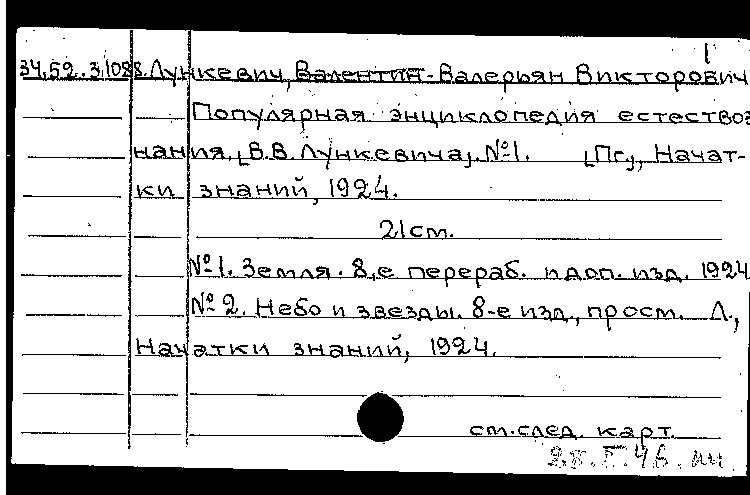 1
34,52.3108
8. Лункевич, Валентин-Валерьян Викторович
Популярная энциклопедия естествоз
нания, [В.В. Лункевича], №1. [Пг], Начат-
ки знаний, 1924.
21см.
№1. Земля. 8-е перераб. и доп. изд. 1924
№2. Небо и звезды. 8-е изд., просм. Л.,
Начатки знаний, 1924.
см.след. карт.